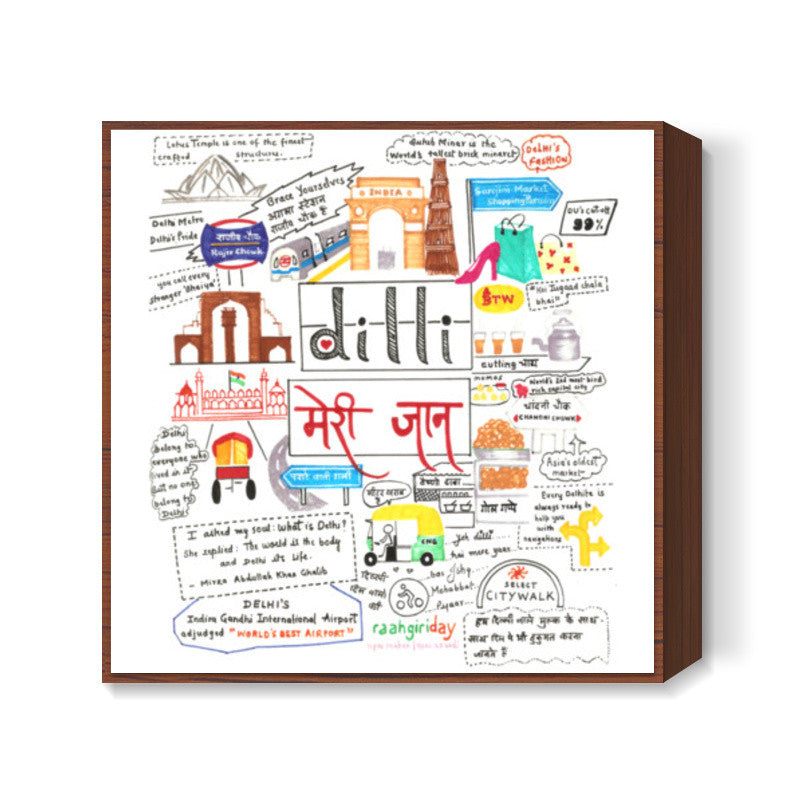 Lotus Temple is one of the finest
crafted structures.
Qutub Minar is the
World's tallest brick minaret
DELHI'S
FASHION
Brace Yourselves
अगला स्टेशन
राजीव चौक है
INDIA
Sarojini Market
Shopping
DU's cut off
99%
Delhi Metro
Delhi's Pride
राजीव चौक
Rajiv Chowk
you call every
stranger 'Bhaiya'
BTW
Jugaad chala
bhai"
dilli
cutting चाय
momos
World's 2nd most bird
rich capital city
मेरी जान
चांदनी चौक
CHANDNI CHOWK
Delhi
belong to
everyone who
lived in it
But no one
belong to
Delhi
Asia's oldest
market
पराठे वाली गली
मीटर खराब
ढाबा
गोल गप्पे
Every Delhite is
always ready to
help you
with
navigations
I asked my soul: What is Delhi?
She replied: The world is the body
and Delhi its life.
- Mirza Abdullah Khan Ghalib
CNG
yeh dilli
hai mere yaar...
bas ishq
Mohabbat
Pyaar
SELECT
CITYWALK
DELHI'S
Indira Gandhi International Airport
adjudged "WORLD'S BEST AIRPORT"
raahgiriday
apni raahen apni azaadi
हम दिल्ली वाले मुल्क के साथ
साथ दिल पे भी हुकूमत करना
जानते हैं